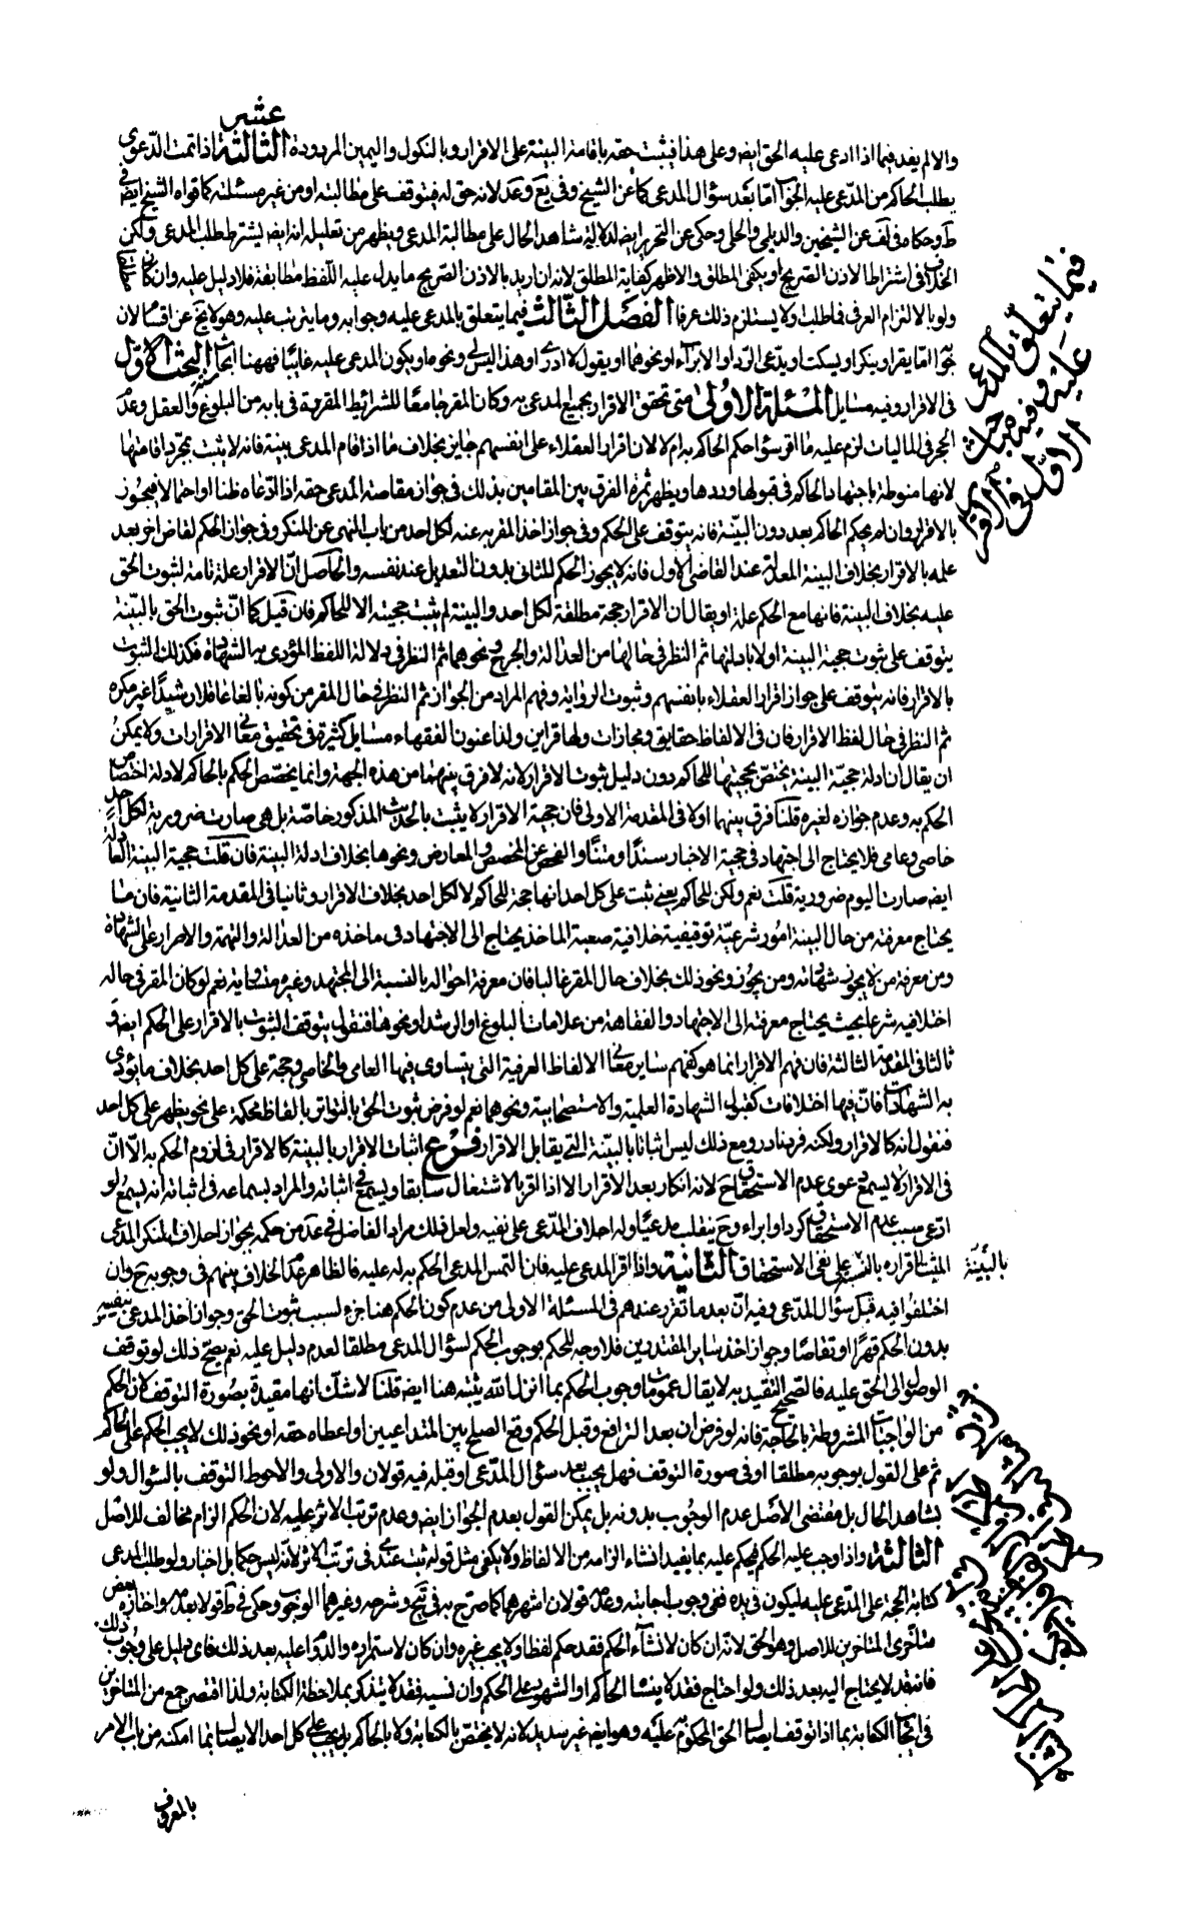 عشر
والا لم يفد فيما اذا ادعى عليه الحق ايضا وعلى هذا فيثبت حقه باقامة البينة على الاقرار وبالنكول واليمين المردودة الثالثة اذا تمت الدعوى
يطلب الحاكم من المدعى عليه الجواب اما بعد سؤال المدعى كما عن الشيخ وفي يع وعد لانه حق له فيتوقف على مطالبته او من غير مسئلته كما قواه الشيخ ايضا في
ط وحكاه في لف عن الشيخين والديلمي والحلي وحكى عن التحرير ايضا لدلالة شاهد الحال على مطالبة المدعى ويظهر من تعليله انه ايضا يشترط طلب المدعى ولكن
الخلاف في اشتراط الاذن الصريح او يكفى المطلق والاظهر كفاية المطلق لانه ان اريد بالاذن الصريح ما يدل عليه اللفظ مطابقة فلا دليل عليه وان كان
ولو بالالتزام العرفى فما طلب ولا يستلزم ذلك عرفا الفصل الثالث فيما يتعلق بالمدعى عليه وجوابه وما يترتب عليه وهو لا يخ عن اقسام لان
جوابه اما يقر او ينكر او يسكت او يدعى الرد او الابراء او نحوهما او يقول لا ادرى او هذا ليس لى ونحوه او يكون المدعى عليه غائبا فههنا ابحاث البحث الاول
فى الاقرار وفيه مسايل المسئلة الاولى متى تحقق الاقرار بجميع المدعى به وكان المقر جامعا للشرائط المقررة فى بابه من البلوغ والعقل وعدم
الحجر فى الماليات لزم عليه ما اقر سواء حكم الحاكم به ام لا لان اقرار العقلاء على انفسهم جايز بخلاف ما اذا اقام المدعى بينة فانه لا يثبت بمجرد اقامتها
لانها منوطة باجتهاد الحاكم فى قبولها وردها ويظهر ثمرة الفرق بين المقامين بذلك فى جواز مقاصة المدعى حقه اذا ادعاه ظنا او احتمالا فيجوز
بالاقرار وان لم يحكم الحاكم بعد دون البينة فانه يتوقف على الحكم وفى جواز اخذ المقر به عنه لكل احد من باب النهى عن المنكر وفى جواز الحكم لقاض اخر بعد
علمه بالاقرار بخلاف البينة المعدلة عند القاضى الاول فانه لا يجوز الحكم للثانى بدون التعديل عند نفسه والحاصل ان الاقرار علة تامة لثبوت الحق
عليه بخلاف البينة فانها مع الحكم علة او يقال ان الاقرار حجة مطلقة لكل احد والبينة لم يثبت حجيته الا للحاكم فان قيل كما ان ثبوت الحق بالبينة
يتوقف على ثبوت حجية البينة اولا بادلتها ثم النظر فى حالها من العدالة والجرح ونحوهما ثم النظر فى دلالة اللفظ المؤدى به الشهادة فكذلك الثبوت
بالاقرار فانه يتوقف على جواز اقرار العقلاء بانفسهم وثبوت الرواية وفهم المراد من الجواز ثم النظر فى حال المقر من كونه بالغا عاقلا رشيدا غير مكره
ثم النظر فى حال لفظ الاقرار فان فى الالفاظ حقايق ومجازات ولها قراين ولذا عنون الفقهاء مسايل كثيرة فى تحقيق معانى الاقرارات ولا يمكن
ان يقال ان ادلة حجية البينة يختص بحجيتها للحاكم دون دليل ثبوت الاقرار لانه لا فرق بينهما من هذه الجهة وانما يخصص الحكم بالحاكم لادلة اختصاص
الحكم به وعدم جوازه لغيره قلنا فرق بينهما اولا فى المقدمة الاولى فان حجية الاقرار لا يثبت بالحديث المذكور خاصة بل هى صارت ضرورية لكل احد
خاصى وعامى فلا يحتاج الى اجتهاد فى حجية الاخبار سندا ومتنا والفحص عن المخصص والمعارض ونحوها بخلاف ادلة البينة فان قلت حجية البينة العادلة
ايضا صارت اليوم ضرورية قلت نعم ولكن للحاكم يعنى ثبت على كل احد انها حجة للحاكم لا لكل احد بخلاف الاقرار وثانيا فى المقدمة الثانية فان ما
يحتاج معرفته من حال البينة امور شرعية توقيفية خلافية صعبة الماخذ يحتاج الى الاجتهاد فى ماخذه من العدالة والتهمة والاصرار على الشهادة
ومن معرفة من لا يجوز شهادته ومن يجوز ونحو ذلك بخلاف حال المقر غالبا فان معرفة احواله بالنسبة الى المجتهد وغيره متساوية نعم لو كان المقر فى حاله
اختلافية شرعا بحيث يحتاج معرفته الى الاجتهاد والفقاهة من علامات البلوغ او الرشد او نحوها فنقول يتوقف الثبوت بالاقرار على الحكم ايضا و
ثالثا فى المقدمة الثالثة فان فهم الاقرار انما هو كفهم ساير معانى الالفاظ العرفية التى يتساوى فيها العامى والخاصى وحجة على كل احد بخلاف ما يؤدى
به الشهادات فان فيها اختلافات كقبول الشهادة العلمية والاستصحابية ونحوهما نعم لو فرض ثبوت الحق بالتواتر بالفاظ محكمة على نحو يظهر على كل احد
فنقول انه كالاقرار ولكنه فرد نادر ومع ذلك ليس اثباتا بالبينة التى يقابل الاقرار فرع اثبات الاقرار بالبينة كالاقرار فى لزوم الحكم به الا ان
فى الاقرار لا يسمع دعوى عدم الاستحقاق ح لانه انكار بعد الاقرار الا اذا اقر بالاشتغال سابقا ويسمع فى اثباته والمراد بسماعه فى اثباته انه يسمع لو
ادعى سبب عدم الاستحقاق كرد او ابراء وح ينقلب مدعيا وله احلاف المدعى على نفيه ولعل ذلك مراد الفاضل فى عد من حكمه بجواز احلاف المنكر المدعى
المثبت اقراره بالبينة على نفى الاستحقاق الثانية واذا اقر المدعى عليه فان التمس المدعى الحكم به له عليه فالظاهر عدم الخلاف بينهم فى وجوبه ح وان
بالبينة
اختلفوا فيه قبل سؤال المدعى وفيه ان بعد ما تقرر عندهم فى المسئلة الاولى من عدم كون الحكم هنا جزء لسبب ثبوت الحق وجواز اخذ المدعى بنفسه
بدون الحكم قهرا او تقاصا وجواز اخذ ساير المقتدرين فلا وجه للحكم بوجوب الحكم لسؤال المدعى مطلقا لعدم دليل عليه نعم يصح ذلك لو توقف
الوصول الى الحق عليه فالصحيح التقييد به لا يقال عمومات وجوب الحكم بما انزل الله يثبته هنا ايضا قلنا لا شك انها مقيدة بصورة التوقف لان الحكم
من الواجبات المشروطة بالحاجة فانه لو فرض ان بعد الترافع وقبل الحكم وقع الصلح بين المتداعيين او اعطاه حقه او نحو ذلك لا يجب الحكم على الحاكم
ثم على القول بوجوبه مطلقا او فى صورة التوقف فهل يجب بعد سؤال المدعى او قبله فيه قولان والاولى والاحوط التوقف بالسؤال ولو
بشاهد الحال بل مقتضى الاصل عدم الوجوب بدونه بل يمكن القول بعدم الجواز ايضا وعدم ترتب الاثر عليه لان الحكم الزام مخالف للاصل
الثالثة واذا وجب عليه الحكم فيحكم عليه بما يفيد انشاء الزامه من الالفاظ ولا يكفى مثل قوله ثبت عندى فى ترتب الاثر لانه ليس حكما بل اخبار ولو طلب المدعى
كتابة الحجة على المدعى عليه ليكون فى يده ففى وجوب اجابته وعدمه قولان اشهرهما كما صرح به فى نج وشرحه وغيرهما الوجوب وحكى فى ط قولا بعدمه واختاره بعض
متاخرى المتاخرين للاصل وهو الحق لانه ان كان لانشاء الحكم فقد حكم لفظا ولا يجب غيره وان كان لاستمراره والدوام عليه بعد ذلك فاى دليل على وجوب ذلك
فانه قد لا يحتاج اليه بعد ذلك ولو احتاج فقد لا ينسا الحاكم او الشهود على الحكم وان نسيه فقد لا يتذكر بملاحظة الكتابة ولذا اقتصر جمع من المتاخرين
فى ايجاب الكتابة بما اذا توقف ايصال الحق المحكوم به عليه وهو ايضا غير سديد لانه لا يختص بالكتابة ولا بالحاكم بل يجب على كل احد الايصال بما امكنه من باب الامر
بالمعروف
فيما يتعلق بالمدعى
عليه وفيه مباحث
الاول فى الاقرار